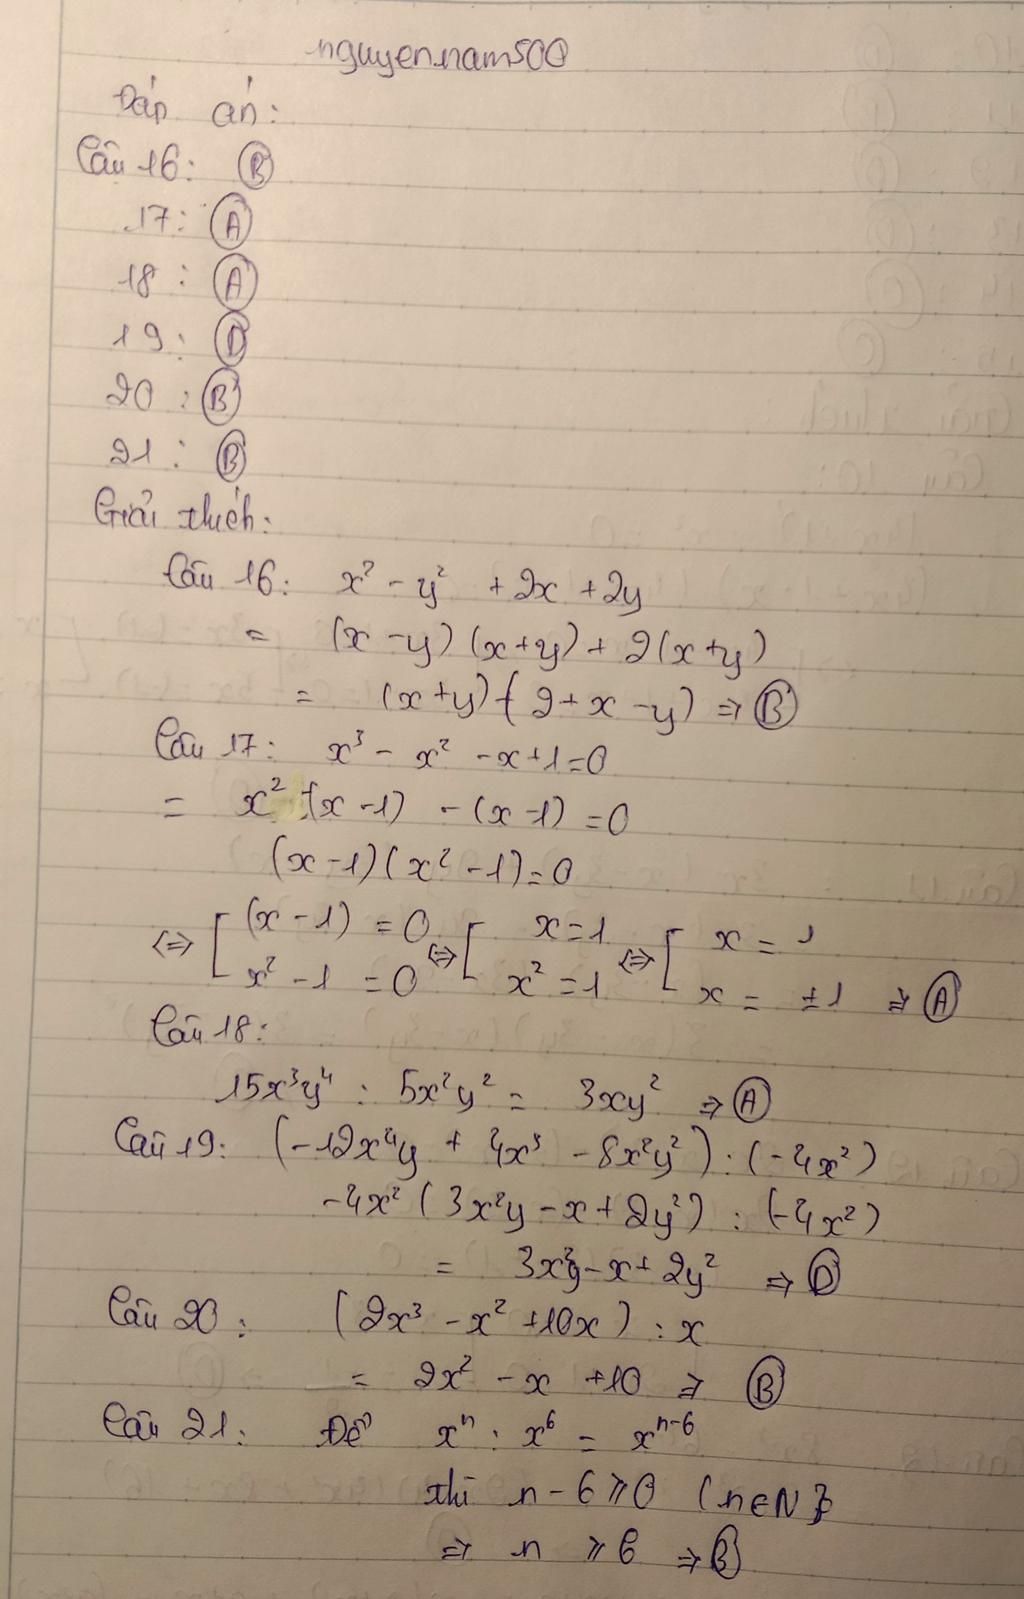 nguyennam500
Đáp án:
Câu 16: B
17: A
18: A
19: D
20: B
21: B
Giải thích:
Câu 16: x² - y² + 2x + 2y
= (x - y)(x + y) + 2(x + y)
= (x + y)(2 + x - y) ⇒ B
Câu 17: x³ - x² - x + 1 = 0
= x² (x - 1) - (x - 1) = 0
(x - 1)(x² - 1) = 0
⇔ [ (x - 1) = 0 ⇔ [ x = 1 ⇔ [ x = 1
x² - 1 = 0 x² = 1 x = ±1 ⇒ A
Câu 18:
15x³y⁴ : 5x²y² = 3xy² ⇒ A
Câu 19: (-12x⁴y + 4x³ - 8x²y²) : (-4x²)
-4x² (3x²y - x + 2y²) : (-4x²)
= 3x²y - x + 2y² ⇒ D
Câu 20: (2x³ - x² + 10x) : x
= 2x² - x + 10 ⇒ B
Câu 21: Để xⁿ : x⁶ = xⁿ⁻⁶
thì n - 6 ⩾ 0 (n ∈ N)
⇒ n ⩾ 6 ⇒ B